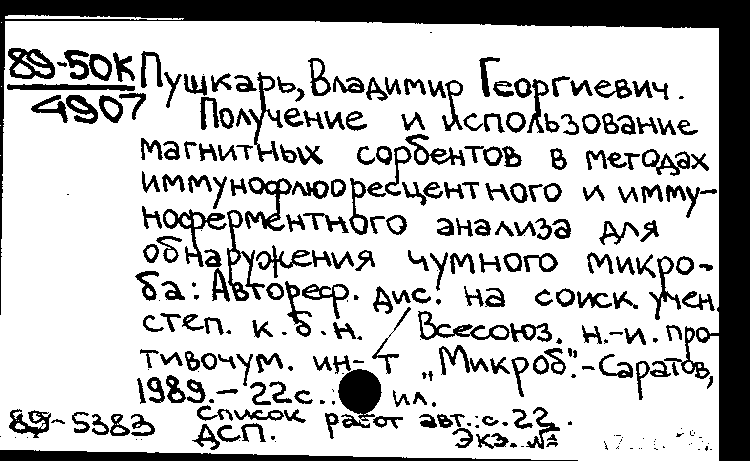 89-50К Пушкарь, Владимир Георгиевич.
4907 Получение и использование
магнитных сорбентов в методах
иммунофлюоресцентного и имму-
ноферментного анализа для
обнаружения чумного микро-
ба: Автореф. дис. на соиск. учен.
степ. к.б.н. Всесоюз. н.-и. про-
тивочум. ин-т "Микроб".-Саратов,
1989.-22с.: ил.
89-5383 Список работ авт.:с.22.
ДСП. Экз. №